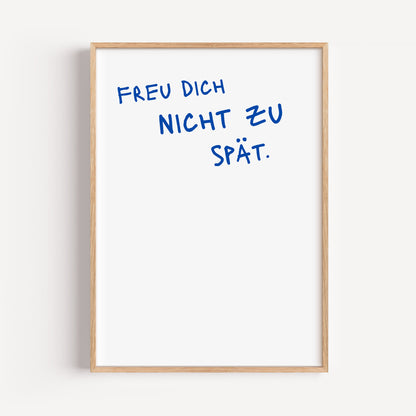 FREU DICH
NICHT ZU
SPÄT.